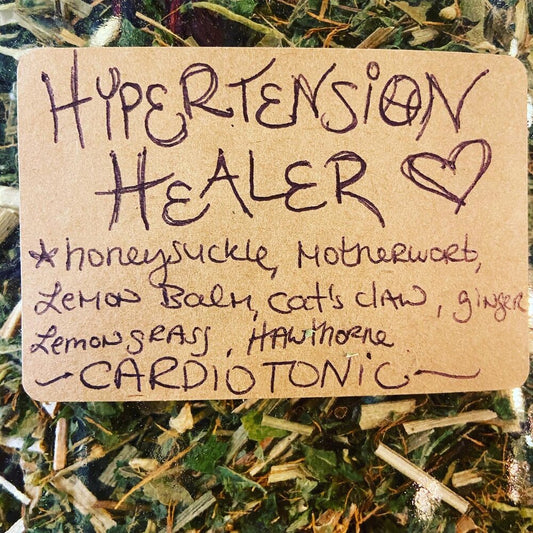 HYPERTENSION
HEALER
*honeysuckle, Motherwort,
Lemon Balm, cat's claw, ginger
Lemongrass, Hawthorne
~CARDIOTONIC~